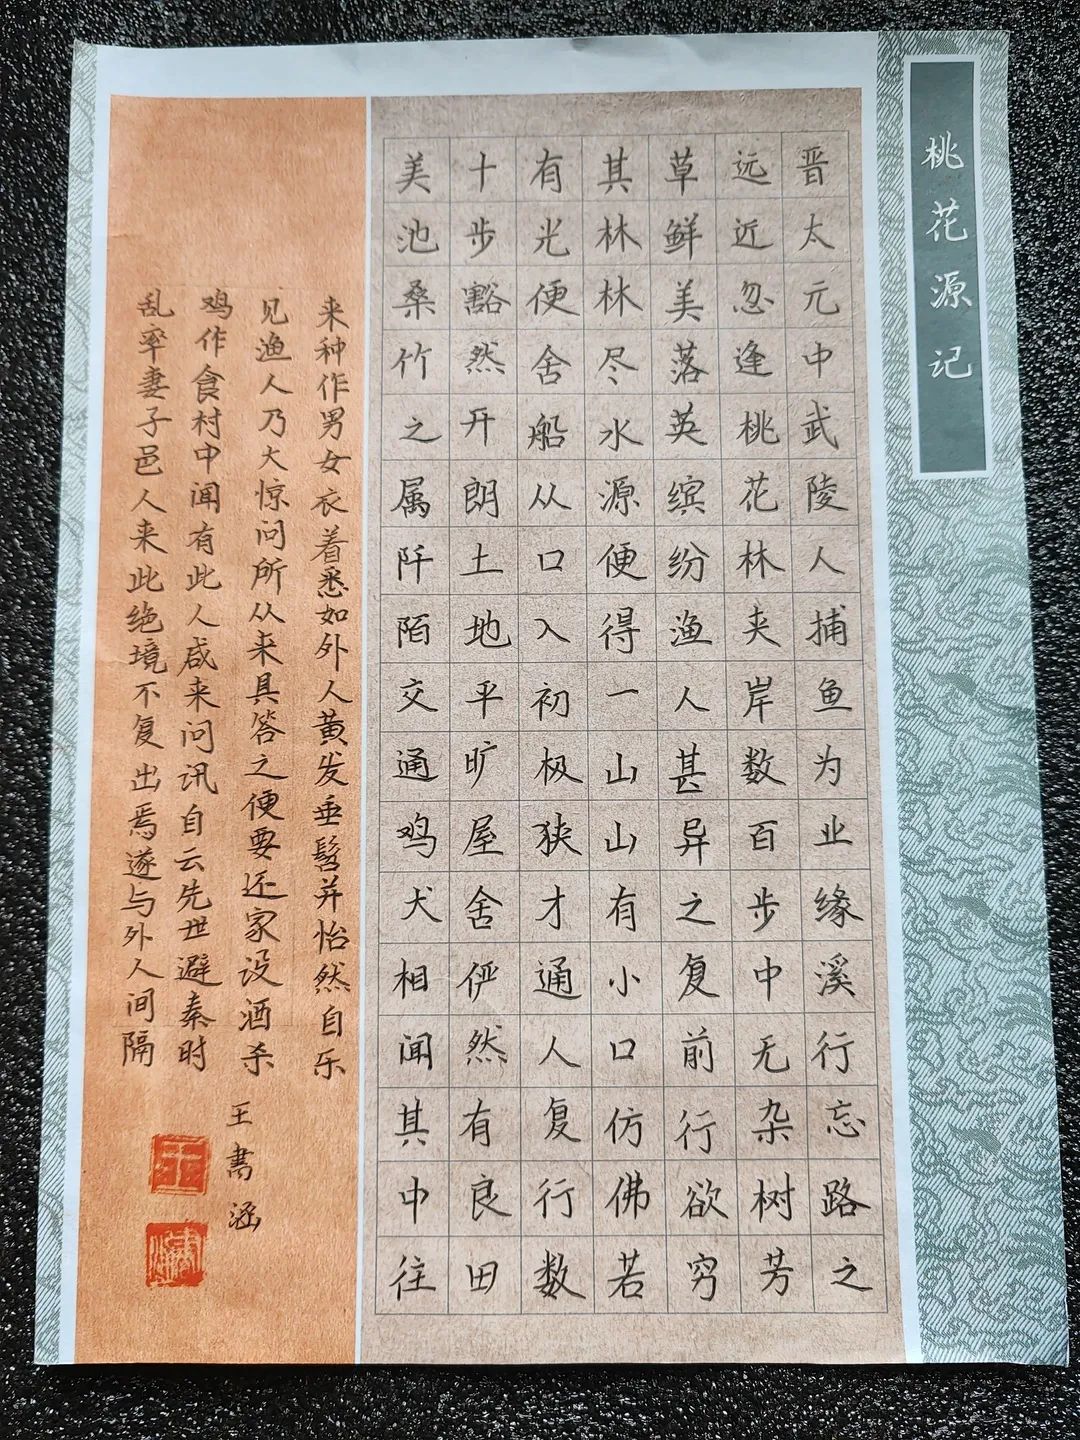 桃花源记
晋太元中武陵人捕鱼为业缘溪行忘路之
远近忽逢桃花林夹岸数百步中无杂树芳
草鲜美落英缤纷渔人甚异之复前行欲穷
其林林尽水源便得一山山有小口仿佛若
有光便舍船从口入初极狭才通人复行数
十步豁然开朗土地平旷屋舍俨然有良田
美池桑竹之属阡陌交通鸡犬相闻其中往
来种作男女衣着悉如外人黄发垂髫并怡然自乐
见渔人乃大惊问所从来具答之便要还家设酒杀
鸡作食村中闻有此人咸来问讯自云先世避秦时
乱率妻子邑人来此绝境不复出焉遂与外人间隔
王書涵
王